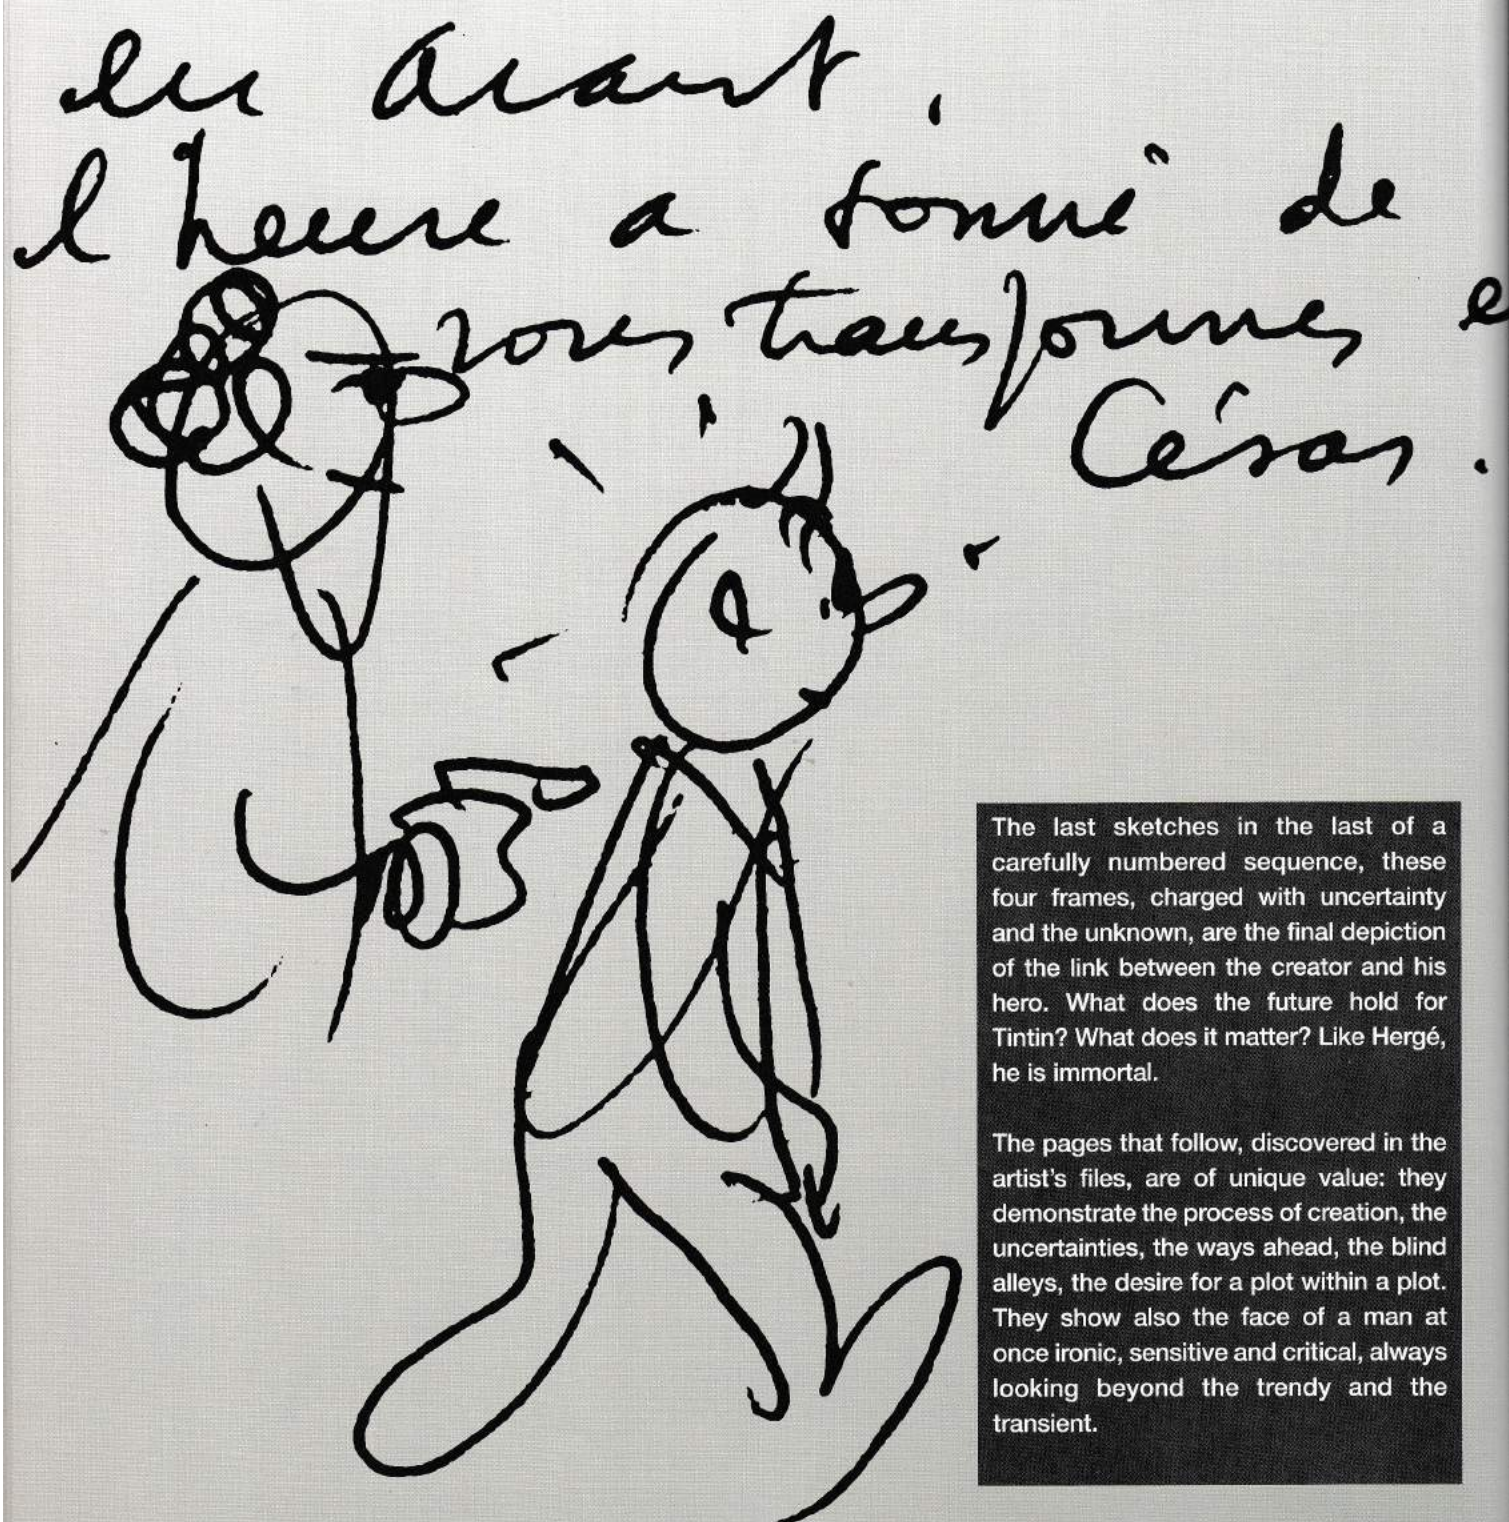 en avant.
l'heure a sonné de
vous transformer e
César.
The last sketches in the last of a
carefully numbered sequence, these
four frames, charged with uncertainty
and the unknown, are the final depiction
of the link between the creator and his
hero. What does the future hold for
Tintin? What does it matter? Like Hergé,
he is immortal.
The pages that follow, discovered in the
artist's files, are of unique value: they
demonstrate the process of creation, the
uncertainties, the ways ahead, the blind
alleys, the desire for a plot within a plot.
They show also the face of a man at
once ironic, sensitive and critical, always
looking beyond the trendy and the
transient.